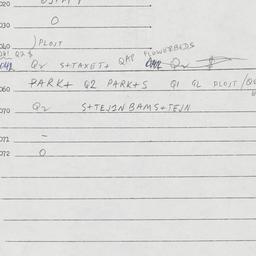 020
030 O
040 ) PLOST
Q2 S+TAXET+ QAP FLOWERBEDS Q2
060 PARK+ Q2 PARK+S Q1 Q2 PLOST /
070 Q2 S+TEJIN BAMS+TEJN
071 -
072 O